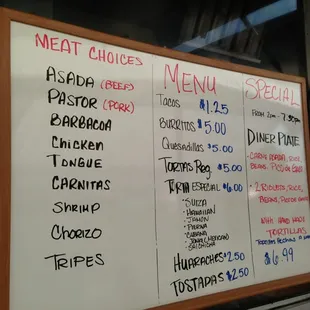 MEAT CHOICES
ASADA (BEEF)
PASTOR (PORK)
BARBACOA
Chicken
TONGUE
CARNITAS
SHRIMP
CHORIZO
TRIPES
MENU
Tacos $1.25
BURRITOS $5.00
Quesadillas $5.00
TORTAS Reg. $5.00
TORTA ESPECIAL $6.00
• SUIZA
• HAWAIIAN
• JAMON
• PIERNA
• CUBANA
HUARACHES $2.50
TOSTADAS $2.50
SPECIAL
FROM 2pm - 7:30pm
DINNER PLATE
RICE,
BEANS,
RICE,
BEANS,
WITH HAND MADE
TORTILLAS
$6.99